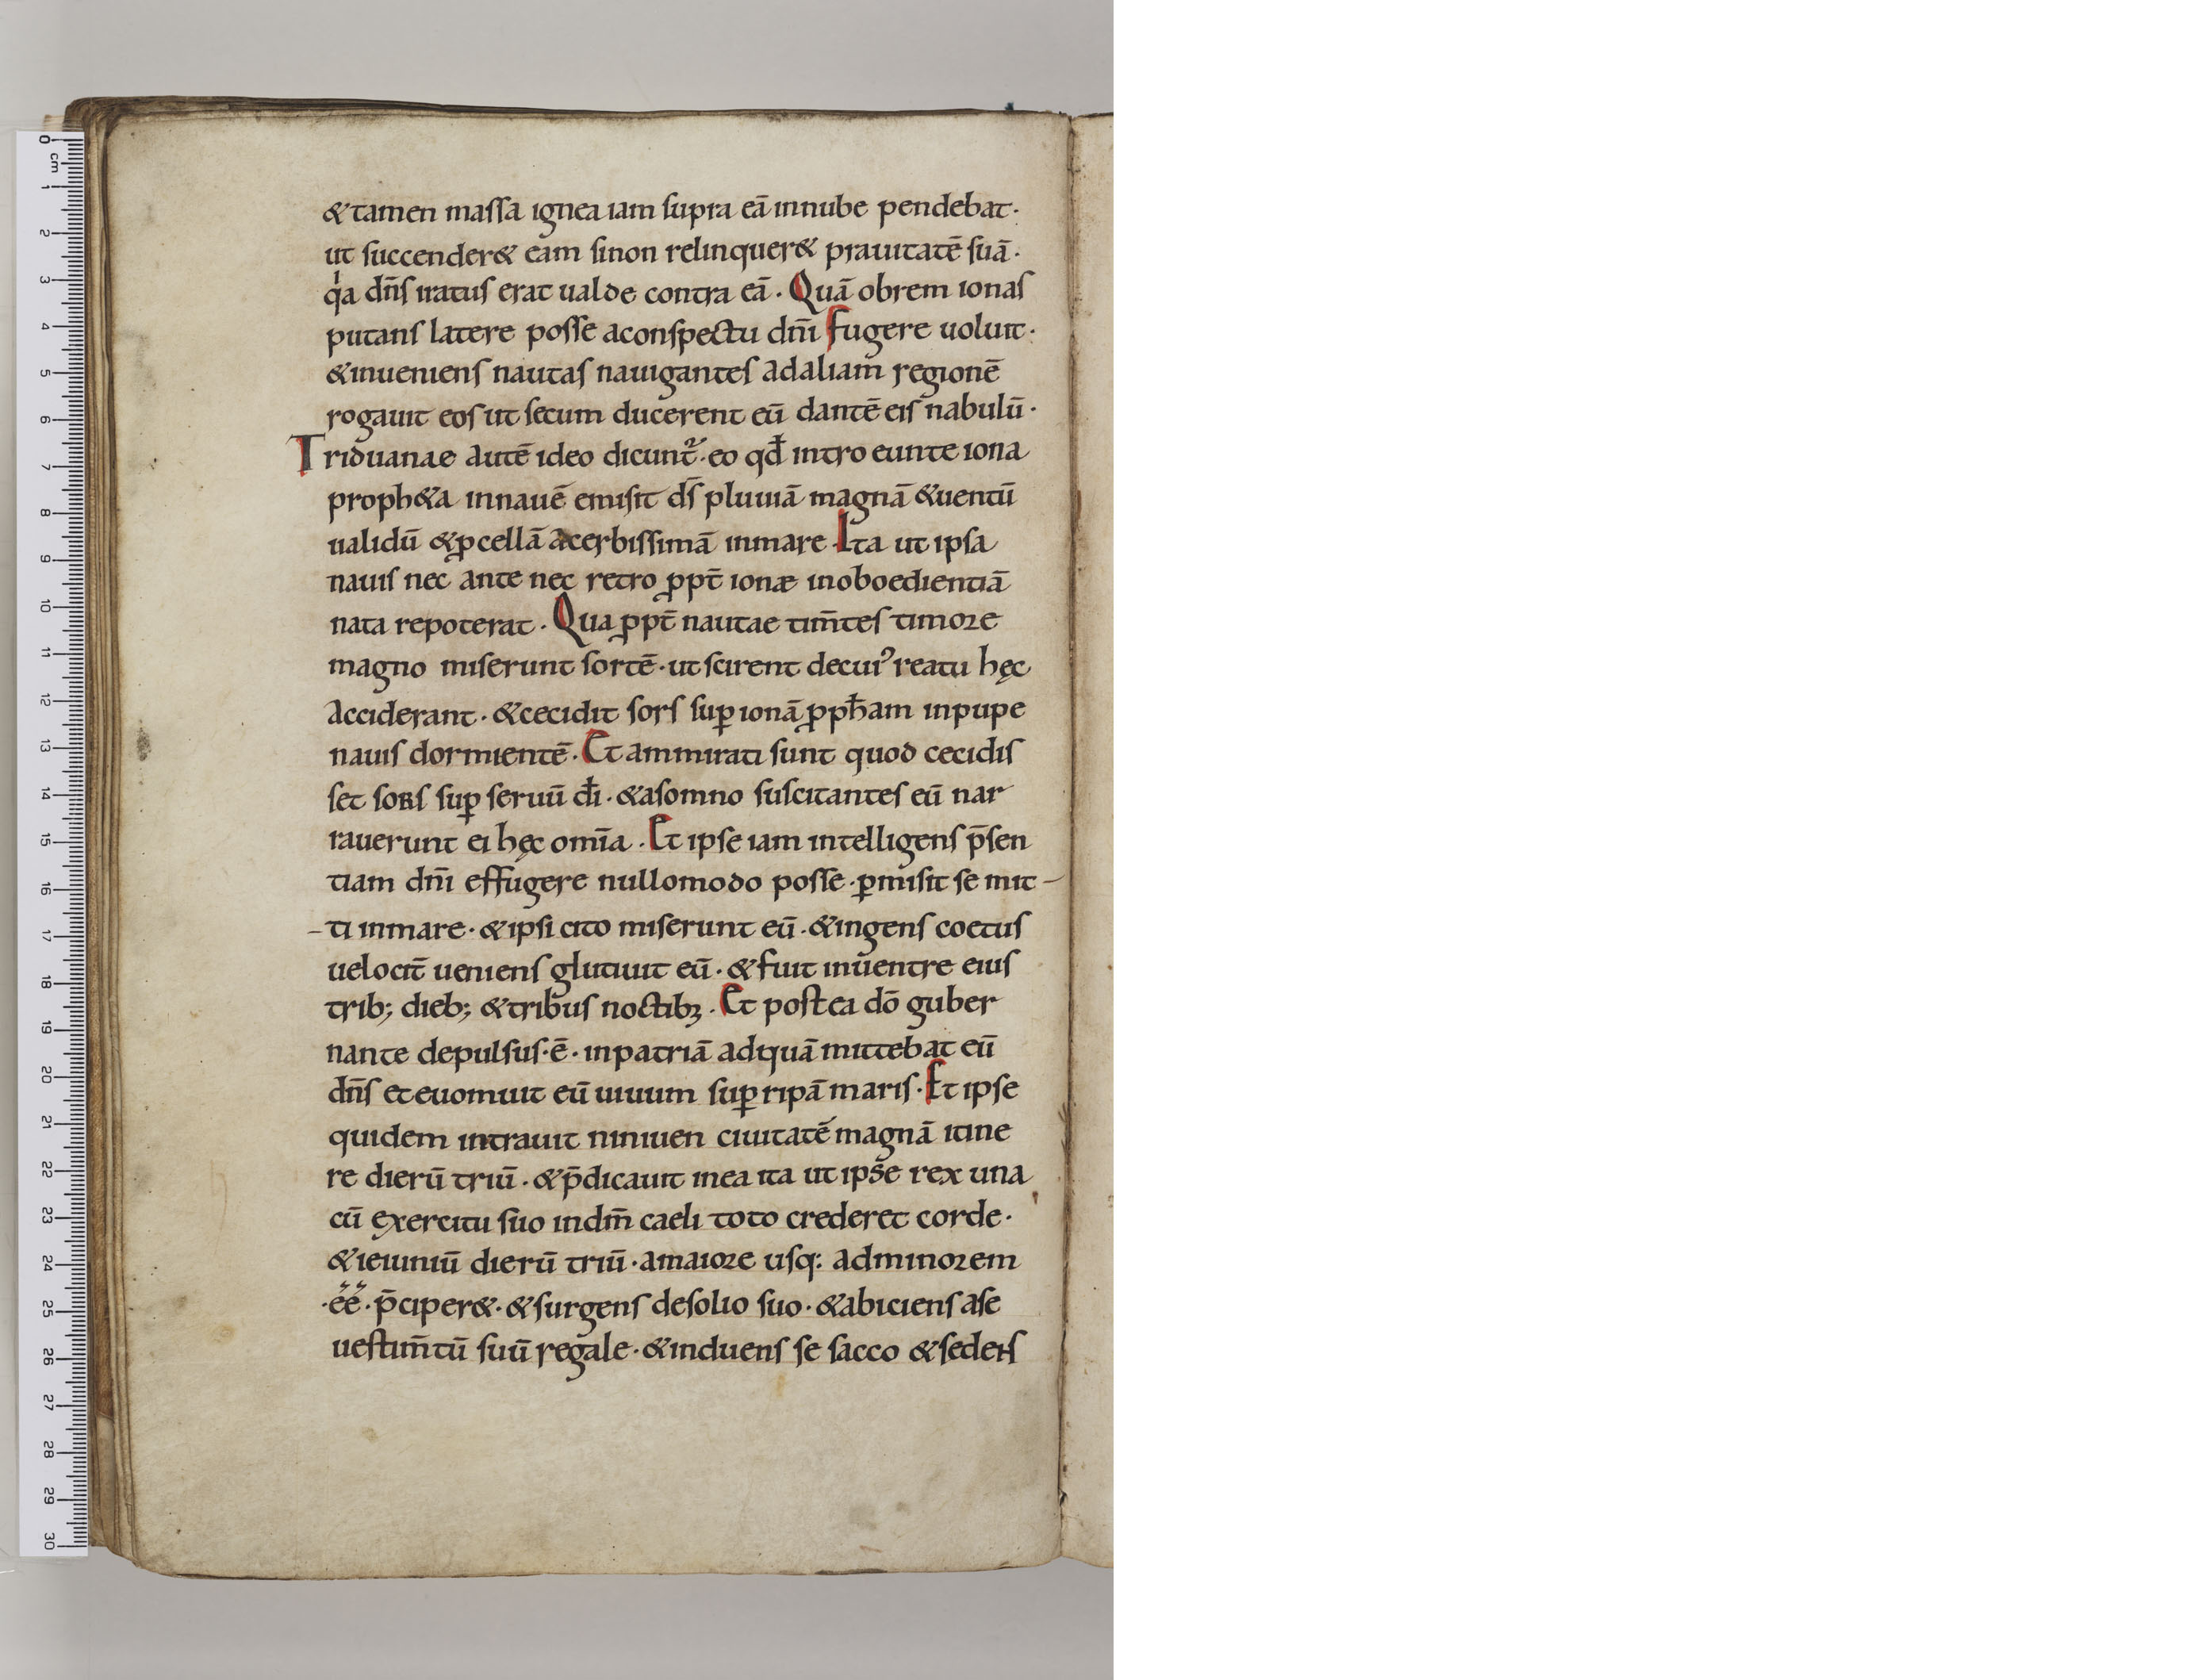 &tamen massa ignea iam supra eā innube pendebat·
ut succender& eam sinon relinquer& prauitatē suā·
qia dn̄s iratus erat ualde contra eā· Quā obrem ionas
putans latere posse aconspectu dn̄i fugere uoluit·
&inueniens nautas nauigantes adaliam regionē
rogauit eos ut secum ducerent eū dantē eis nabulū·
Triduanae autē ideo dicunt᷑· eo qđ intro eunte iona
proph&a innauē emisit d̄s pluuiā magnā &uentū
ualidū &ꝓcellā acerbissimā inmare· Ita ut ipsa
nauis nec ante nec retro ꝓpt̄ ionæ inoboedientiā
nata repoterat· Qua ꝓpt̄ nautae tim̄tes timore
magno miserunt sortē· ut scirent decuiꝰ reatu hęc
acciderant· &cecidit sors suꝑ ionā ꝓpħam inpupe
nauis dormientē· Et ammirati sunt quod cecidis
set sors suꝑ seruū đi· &asomno suscitantes eū nar
rauerunt ei hęc om̄ia· Et ipse iam intelligens p̄sen
tiam dn̄i effugere nullomodo posse· ꝑmisit se mit-
-ti inmare· &ipsi cito miserunt eū· &ingens coetus
uelocit̄ ueniens glutiuit eū· &fuit inuentre eius
trib; dieb; &tribus noctibꝫ· Et postea dō guber
nante depulsus·ē· inpatriā adquā mittebat eū
dn̄s et euomuit eū uiuum suꝑ ripā maris· Et ipse
quidem intrauit niniuen ciuitatē magnā itine
re dierū triū· &p̄dicauit inea ita ut ipse rex una
cū exercitu suo indm̄ caeli toto crederet corde·
&ieiuniū dierū triū· amaiore usq: adminorem
·ee· p̄ciper&· &surgens desolio suo· &abiciens ase
uestim̄tū suū regale· &induens se sacco &sedens
0 cm 1 2 3 4 5 6 7 8 9 10 11 12 13 14 15 16 17 18 19 20 21 22 23 24 25 26 27 28 29 30